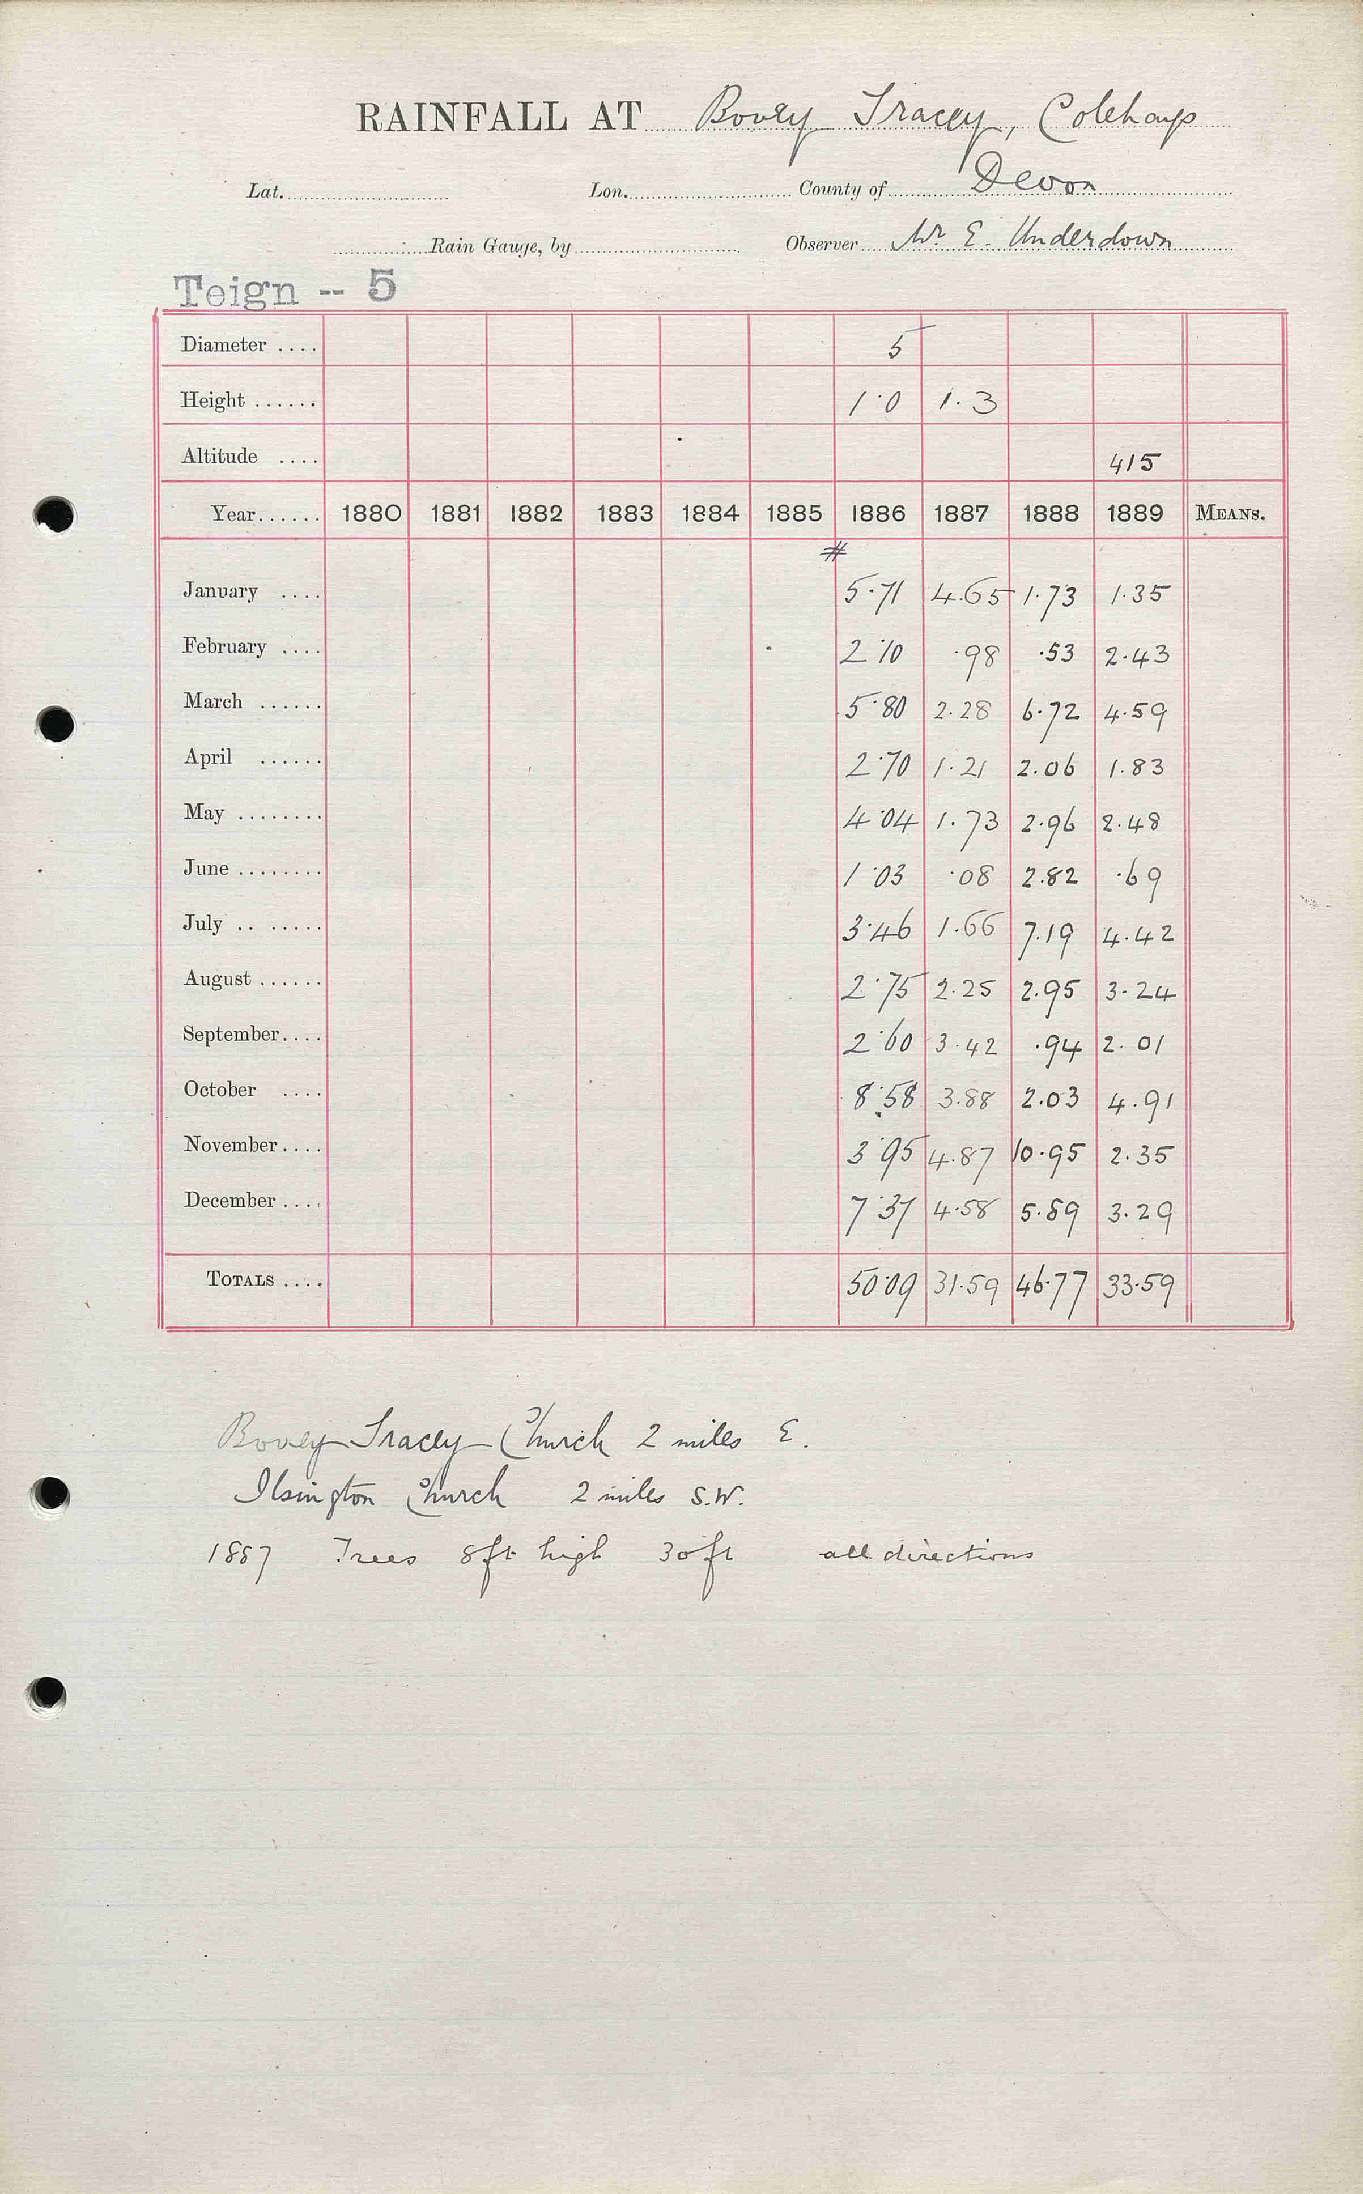 RAINFALL AT Bovey Tracey, Colehays
Lat. Lon. County of Devon
Rain Gauge, by Observer Mr E. Underdown
Teign -- 5
Diameter .... 5
Height ...... 1·0 1·3
Altitude .... 415
Year...... 1880 1881 1882 1883 1884 1885 1886 1887 1888 1889 MEANS.
#
January .... 5·71 4.65 1.73 1.35
February .... 2·10 ·98 ·53 2.43
March ...... 5·80 2.28 6.72 4.59
April ...... 2·70 1.21 2.06 1.83
May ........ 4·04 1.73 2.96 2.48
June ........ 1·03 ·08 2.82 ·69
July .. ..... 3·46 1.66 7.19 4.42
August ...... 2·75 2.25 2.95 3.24
September.... 2·60 3.42 ·94 2.01
October .... 8·58 3.88 2.03 4.91
November.... 3·95 4.87 10.95 2.35
December .... 7·37 4.58 5.89 3.29
TOTALS .... 50·09 31.59 46.77 33.59
Bovey Tracey Church 2 miles E.
Ilsington Church 2 miles S.W.
1887 Trees 8ft high 30ft all directions